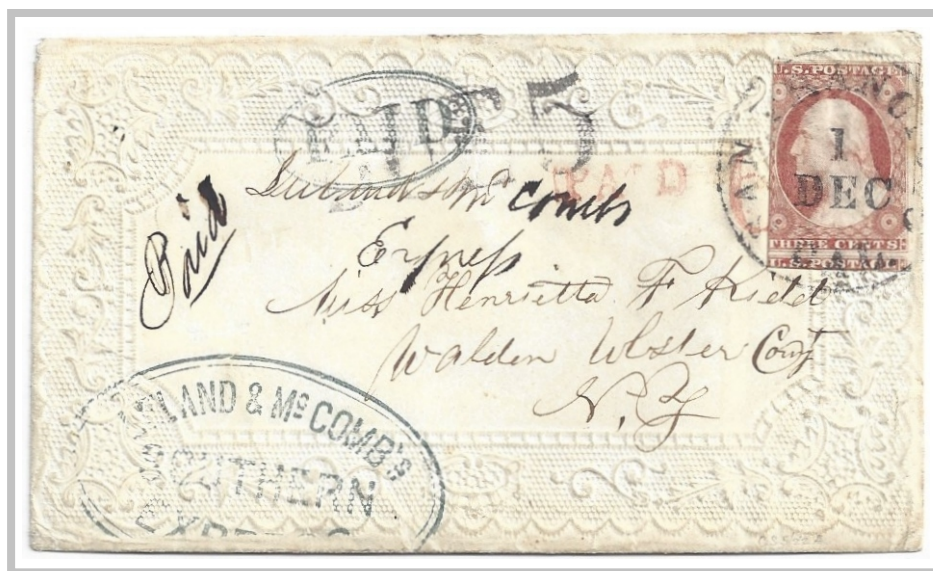 U.S. POSTAGE
1
DEC
THREE CENTS
U.S. POSTA
PAID
5
PAID
Paid
Combs
Express
Miss Henrietta F Kidd
Walden Ulster Couty
N. Y
LAND & Mc COMB'S
SOUTHERN